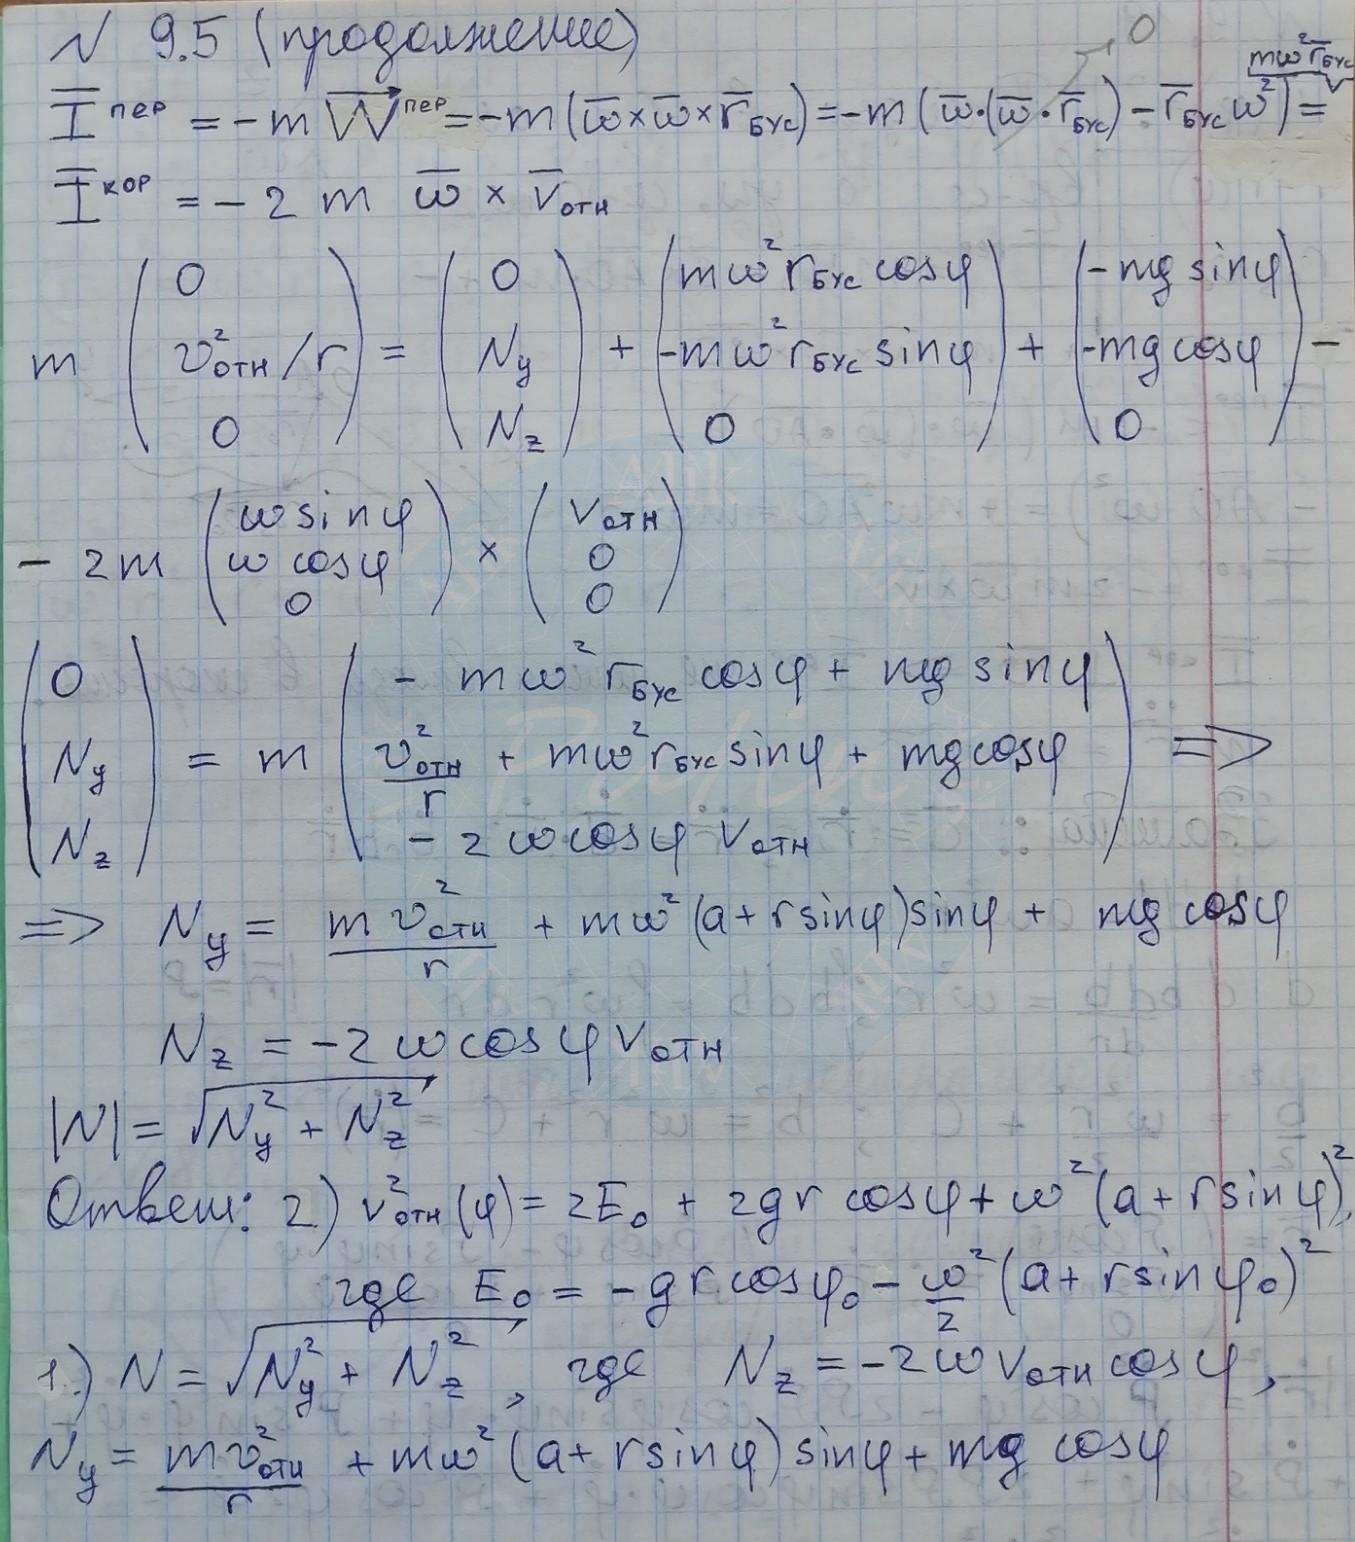 N 9.5 (продолжение)
I̅ᵖᵉʳ = -m W⃗ᵖᵉʳ = -m (ω̅×ω̅×r̅бус) = -m (ω̅·(ω̅·r̅бус) - r̅бус ω²) = mω²r̅бус
0
I̅ᵏᵒᵖ = - 2 m ω̅ × v̅отн
m (0; v²отн/r; 0) = (0; Ny; Nz) + (mω²rбус cosφ; -mω²rбус sinφ; 0) + (-mg sinφ; -mg cosφ; 0) -
- 2m (ω sinφ; ω cosφ; 0) × (vотн; 0; 0)
(0; Ny; Nz) = m (- mω²rбус cosφ + mg sinφ; v²отн/r + mω²rбус sinφ + mg cosφ; - 2ω cosφ vотн) =>
=> Ny = m v²отн/r + mω²(a + r sinφ) sinφ + mg cosφ
Nz = -2ω cosφ vотн
|N| = √(Ny² + Nz²)
Ответ: 2) v²отн(φ) = 2E₀ + 2gr cosφ + ω²(a + r sinφ)²,
где E₀ = -gr cosφ₀ - ω²/2 (a + r sinφ₀)²
1.) N = √(Ny² + Nz²), где Nz = -2ω vотн cosφ,
Ny = mv²отн/r + mω²(a + r sinφ) sinφ + mg cosφ